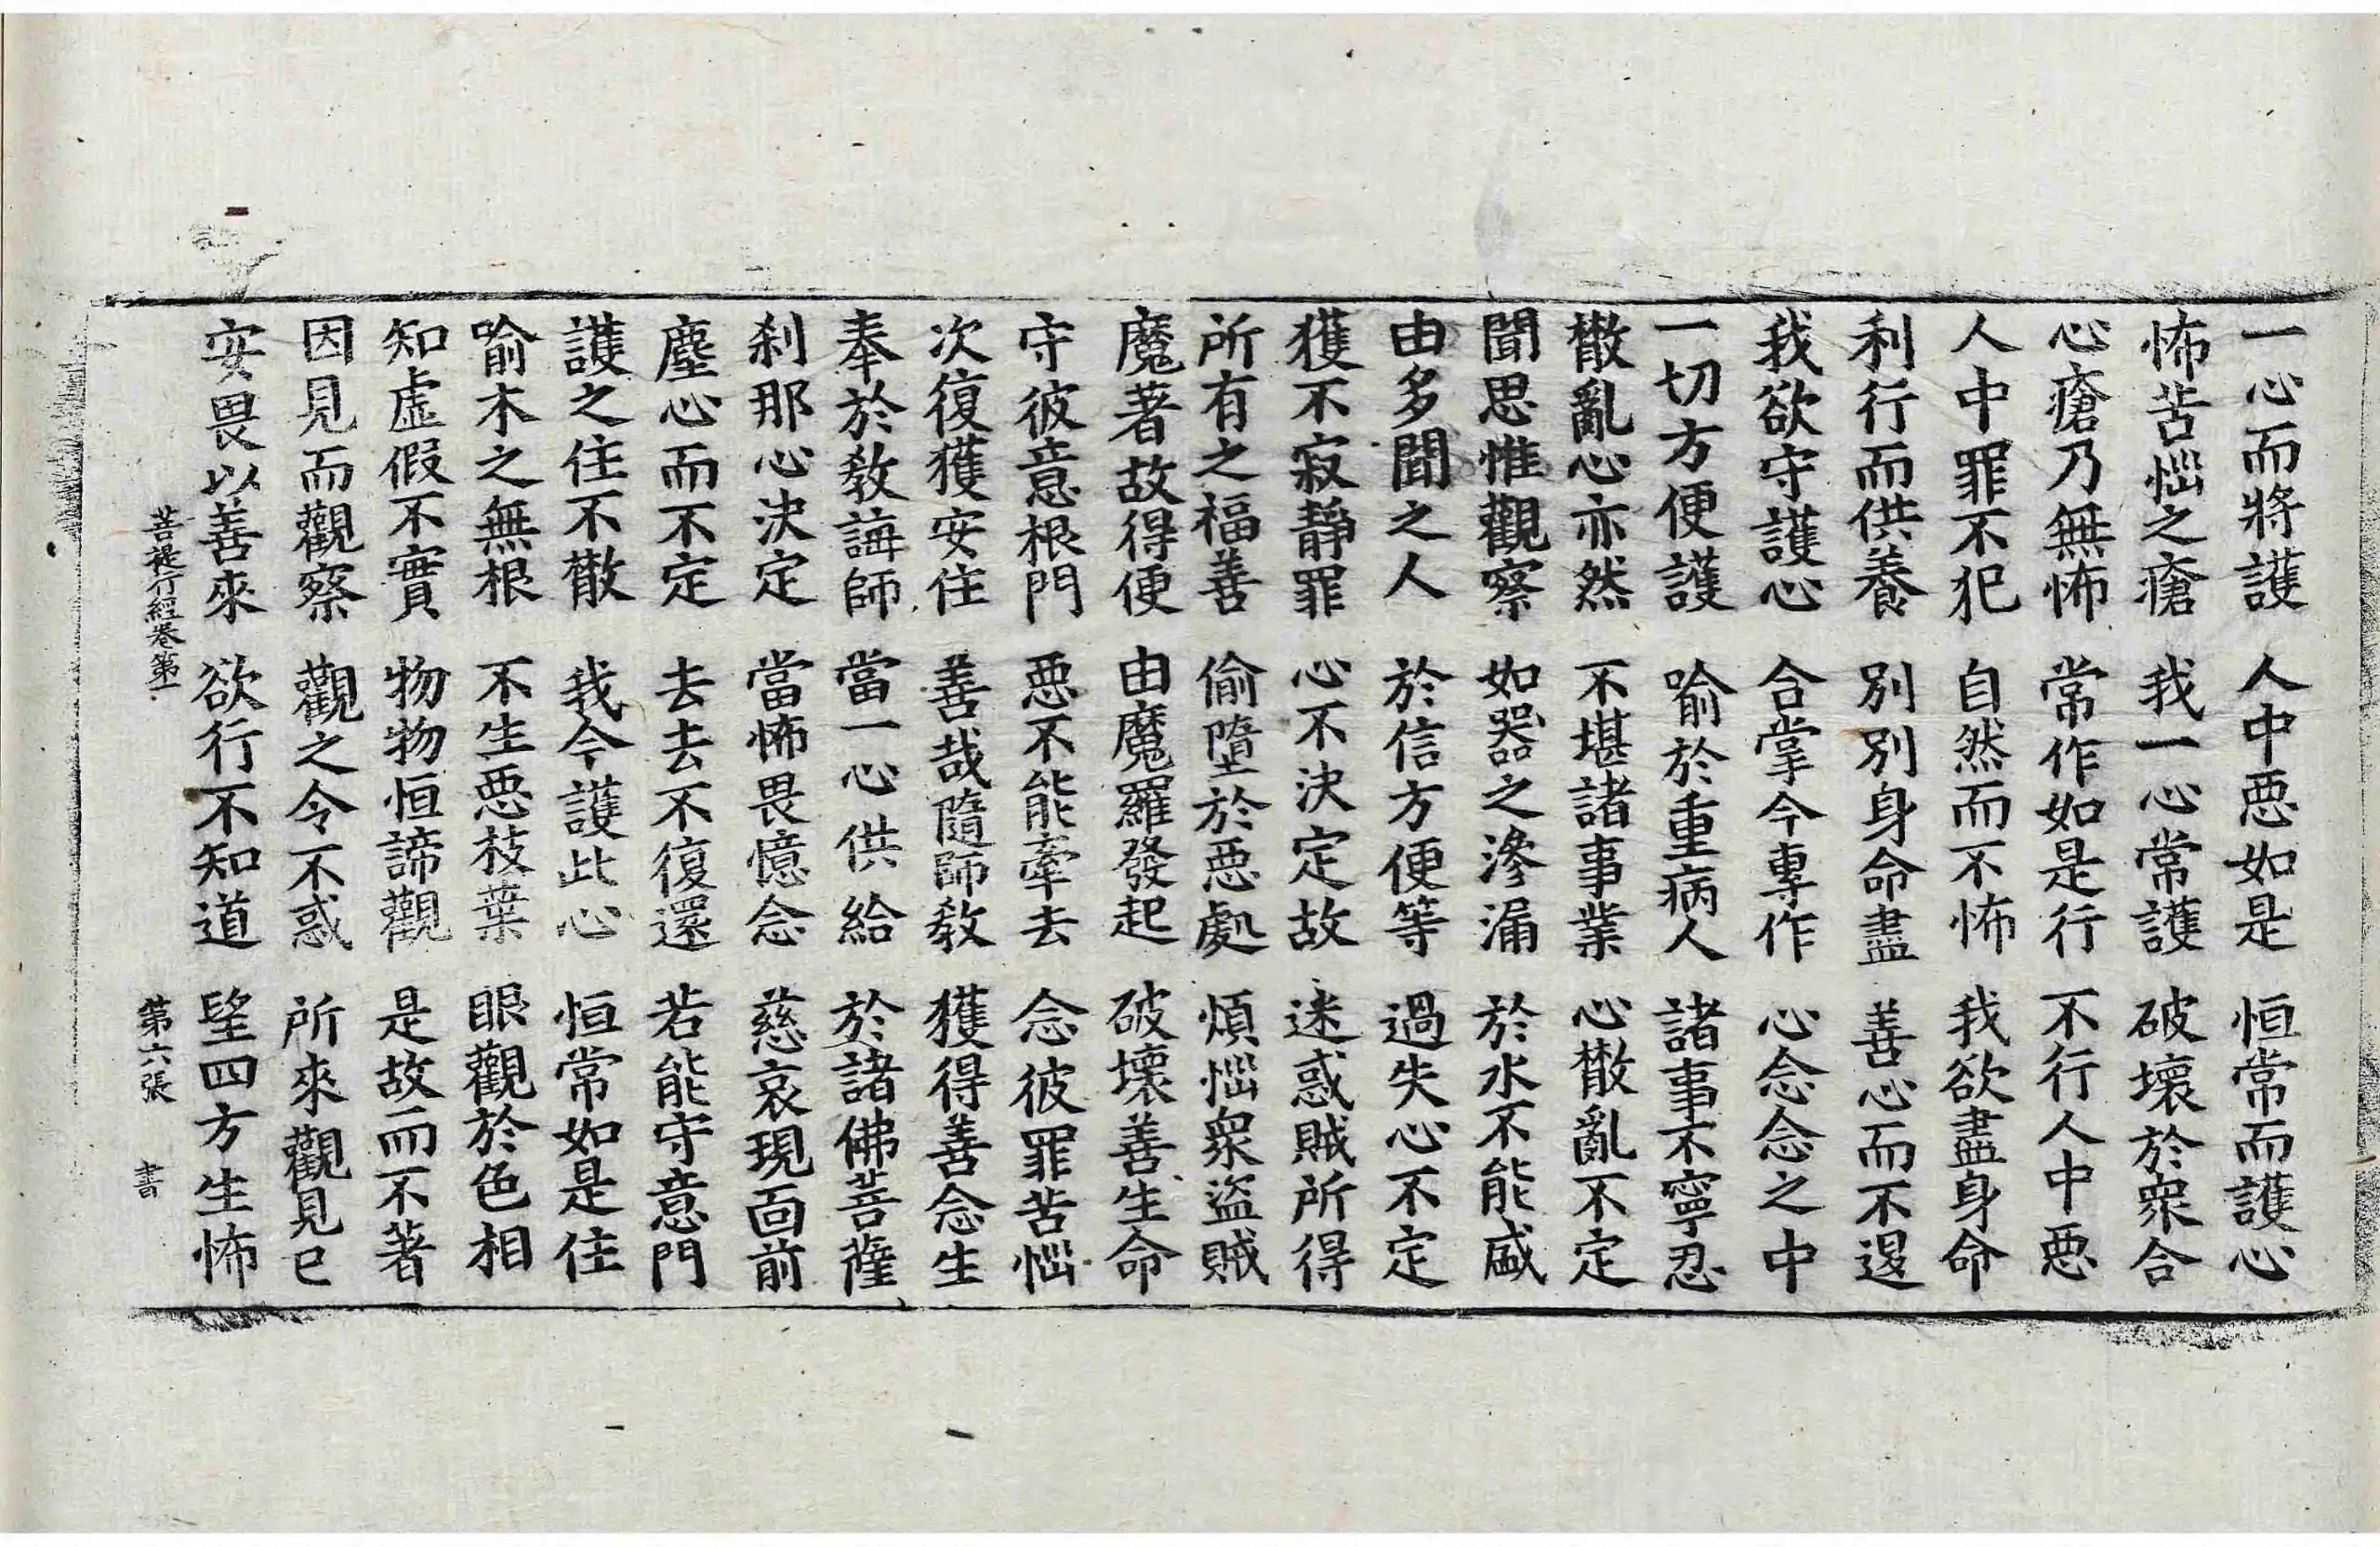 一心而將護 人中惡如是 恒常而護心
怖苦惱之瘡 我一心常護 破壞於衆合
心瘡乃無怖 常作如是行 不行人中惡
人中罪不犯 自然而不怖 我欲盡身命
利行而供養 別別身命盡 善心而不退
我欲守護心 合掌今專作 心念念之中
一切方便護 喻於重病人 諸事不寧忍
散亂心亦然 不堪諸事業 心散亂不定
聞思惟觀察 如器之滲漏 於水不能盛
由多聞之人 於信方便等 過失心不定
獲不寂靜罪 心不決定故 迷惑賊所得
所有之福善 偷墮於惡處 煩惱衆盜賊
魔著故得便 由魔羅發起 破壞善生命
守彼意根門 惡不能牽去 念彼罪苦惱
次復獲安住 善哉隨師教 獲得善念生
奉於教誨師 當一心供給 於諸佛菩薩
刹那心決定 當怖畏憶念 慈哀現面前
塵心而不定 去去不復還 若能守意門
護之住不散 我今護此心 恒常如是住
喻木之無根 不生惡枝葉 眼觀於色相
知虛假不實 物物恒諦觀 是故而不著
因見而觀察 觀之令不惑 所來觀見已
安畏以善來 欲行不知道 望四方生怖
菩提行經卷第一 第六張 書